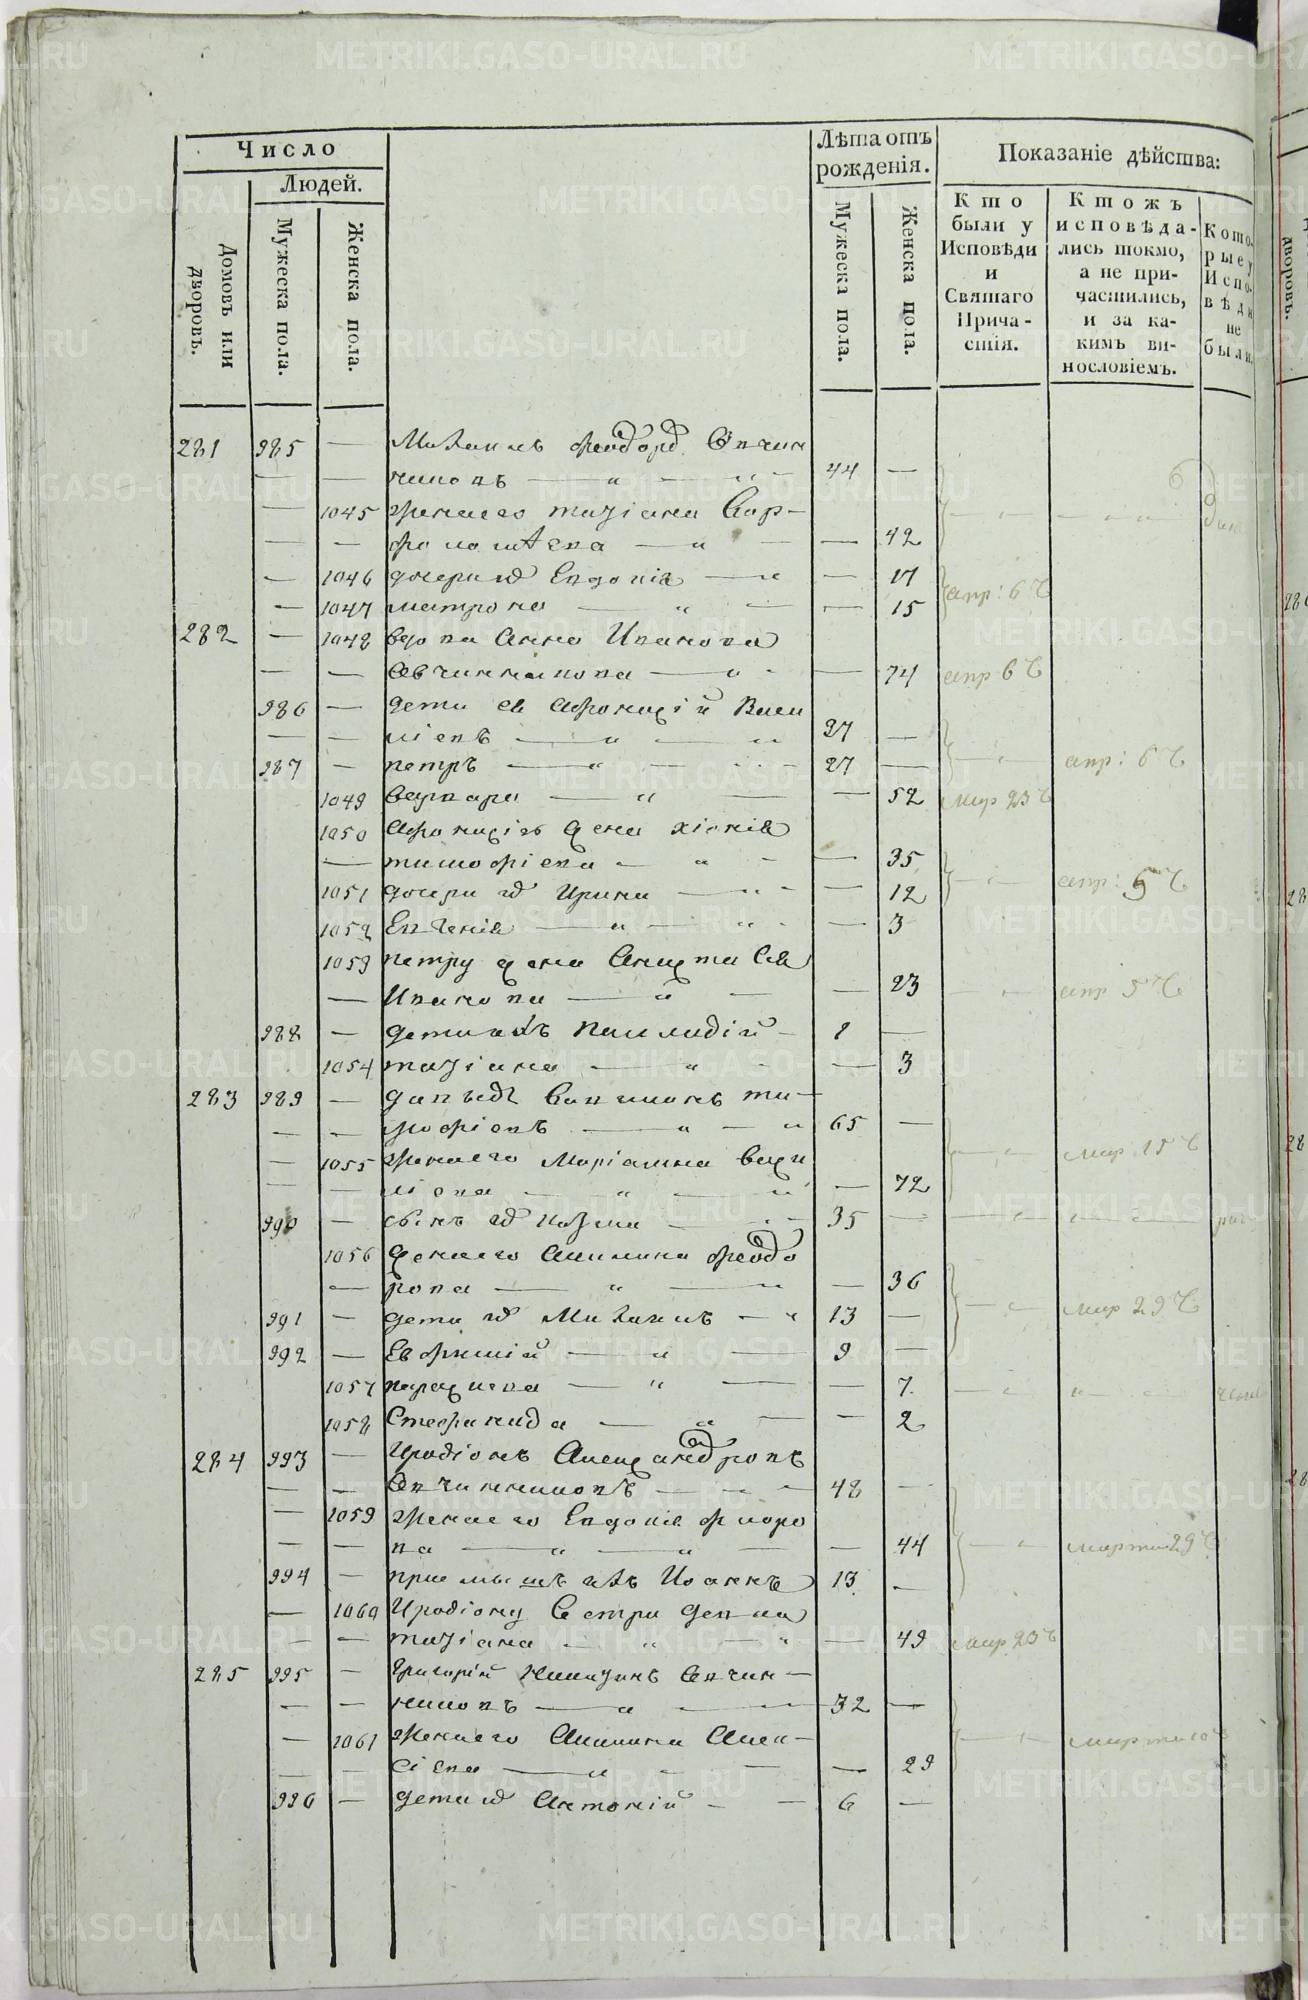 Число
Людей.
Домовъ или дворовъ.
Мужеска пола.
Женска пола.
Лѣта отъ рожденія.
Мужеска пола.
Женска пола.
Показаніе дѣйства:
Кто были у Исповѣди и Святаго Причастія.
Ктожъ исповѣдались токмо, а не причастились, и за какимъ винословіемъ.
Которые у Исповѣди не были.
281 985 — Михаилъ Феодор Овчин
никовъ — 44 —
— 1045 Жена его Татіана Вар-
фоломѣева — — 42
— 1046 дочери их Евдокія — — 17 апр: 6 Ч
— 1047 матрона — — 15
282 — 1048 вдова Анна Иванова
Овчинникова — — 74 апр 6 Ч
986 — дети ея Афонасій Васи
ліевъ — 37 —
987 — петръ — 27 — апр: 6 Ч
1049 варвара — — 52 мар 23 Ч
1050 Афонасія жена хіонія
— тимофіева — — 35
1051 дочери их Ирина — — 12 апр: 5 Ч
1052 Евгенія — — 3
1053 петру жена Анастасія
— Иванова — — 23 апр 5 Ч
988 — дети ихъ Палладій — 1 —
1054 татіана — — 3
283 989 — давыдъ ти-
мофіевъ — 65 —
— 1055 Жена его Маріамна васи
ліева — — 72 мар 15 Ч
990 — сынъ их 35 —
1056 Жена его Акилина Феодо
— рова — — 36
991 — дети их Михаилъ — 13 — мар 29 Ч
992 — Евфимій — 9 —
1057 параскева — — 7
1058 Стефанида — — 2
284 993 — Иродіонъ Александровъ
Овчинниковъ — 48 —
— 1059 Жена его Евдокія флоро
ва — — 44 марта 29 Ч
994 — приемышъ ихъ Иоаннъ 13 —
— 1060 Иродіону Сестра девка
татіана — — 49 мар 23 Ч
285 995 — Григорій Никитинъ Овчин-
никовъ — 32 —
— 1061 Жена его Акилина Алек-
сіева — — 29 марта
996 — дети их Антоній — 6 —
METRIKI.GASO-URAL.RU